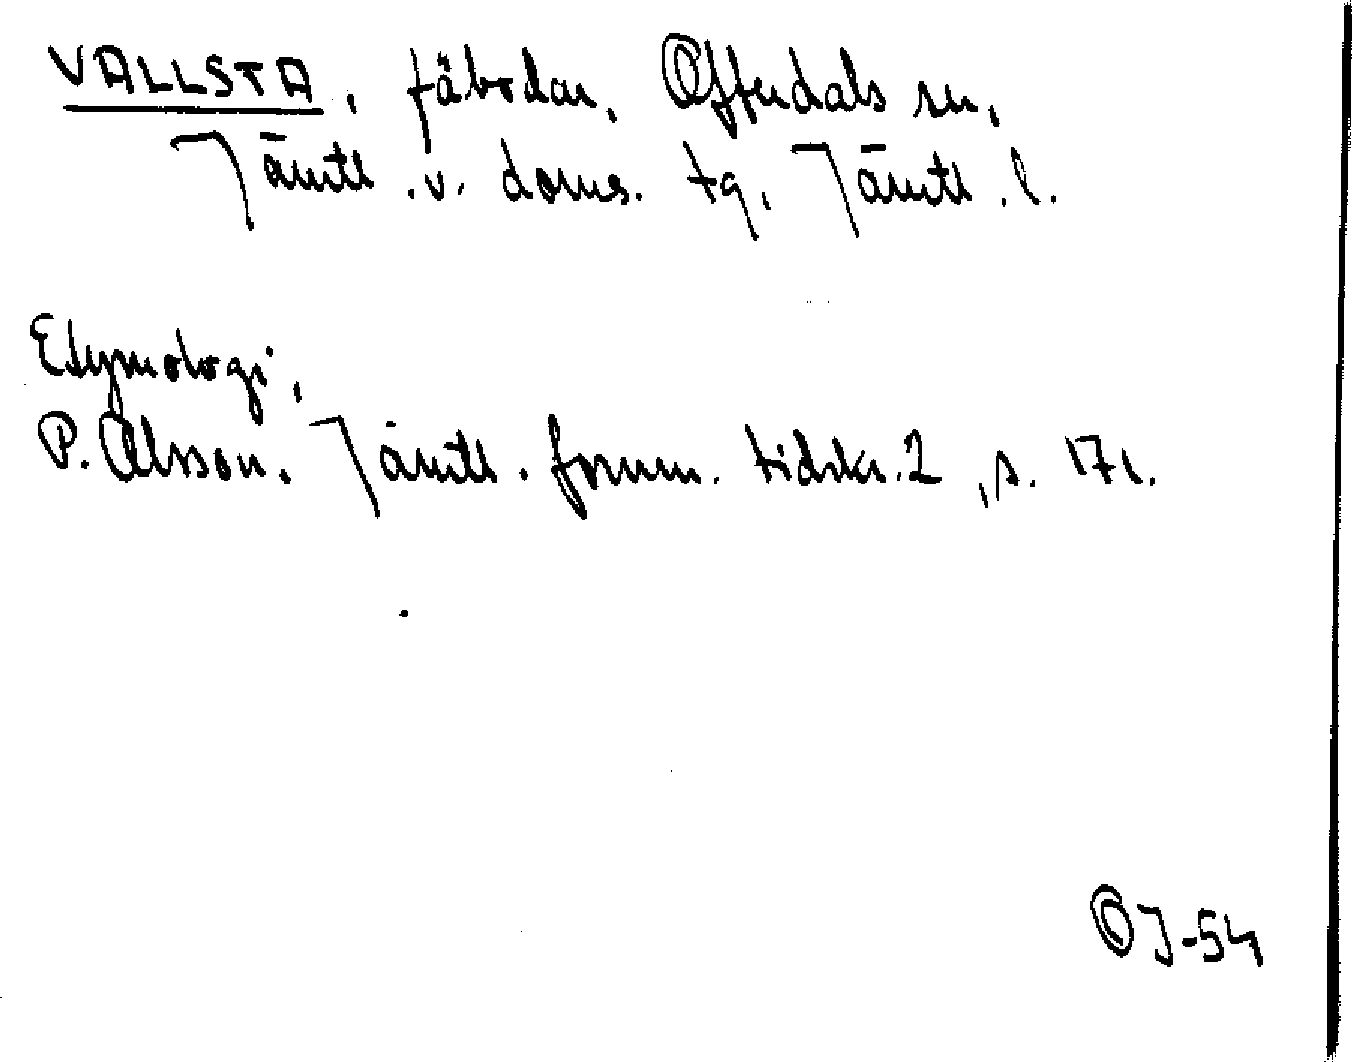 VALLSTA, fäbodar, Offerdals sn,
Jämtl. v. doms. tg, Jämtl. l.
Etymologi,
P. Olsson. Jämtl. fornm. tidskr. 2, s. 171.
OJ-54